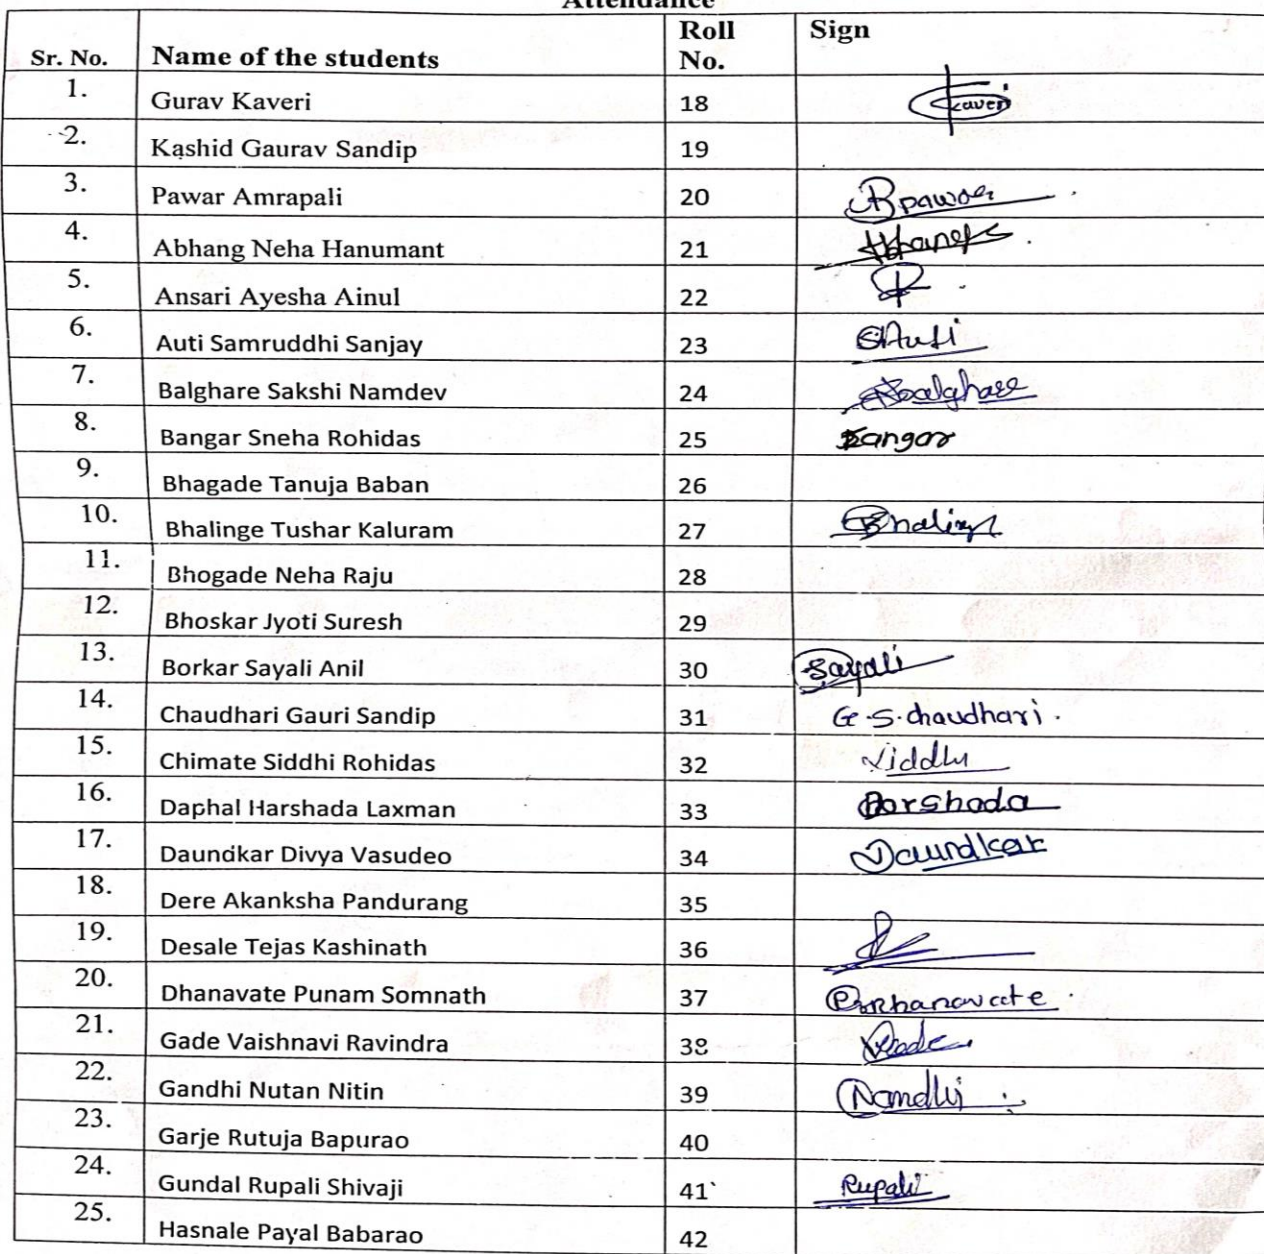 Attendance
Sr. No. Name of the students Roll No. Sign
1. Gurav Kaveri 18 Kaveri
2. Kashid Gaurav Sandip 19
3. Pawar Amrapali 20 Pawar
4. Abhang Neha Hanumant 21
5. Ansari Ayesha Ainul 22
6. Auti Samruddhi Sanjay 23 SAuti
7. Balghare Sakshi Namdev 24 Balghare
8. Bangar Sneha Rohidas 25 Bangar
9. Bhagade Tanuja Baban 26
10. Bhalinge Tushar Kaluram 27
11. Bhogade Neha Raju 28
12. Bhoskar Jyoti Suresh 29
13. Borkar Sayali Anil 30 Sayali
14. Chaudhari Gauri Sandip 31 G.S.chaudhari.
15. Chimate Siddhi Rohidas 32
16. Daphal Harshada Laxman 33
17. Daundkar Divya Vasudeo 34 Daundkar
18. Dere Akanksha Pandurang 35
19. Desale Tejas Kashinath 36
20. Dhanavate Punam Somnath 37
21. Gade Vaishnavi Ravindra 38
22. Gandhi Nutan Nitin 39
23. Garje Rutuja Bapurao 40
24. Gundal Rupali Shivaji 41 Rupali
25. Hasnale Payal Babarao 42